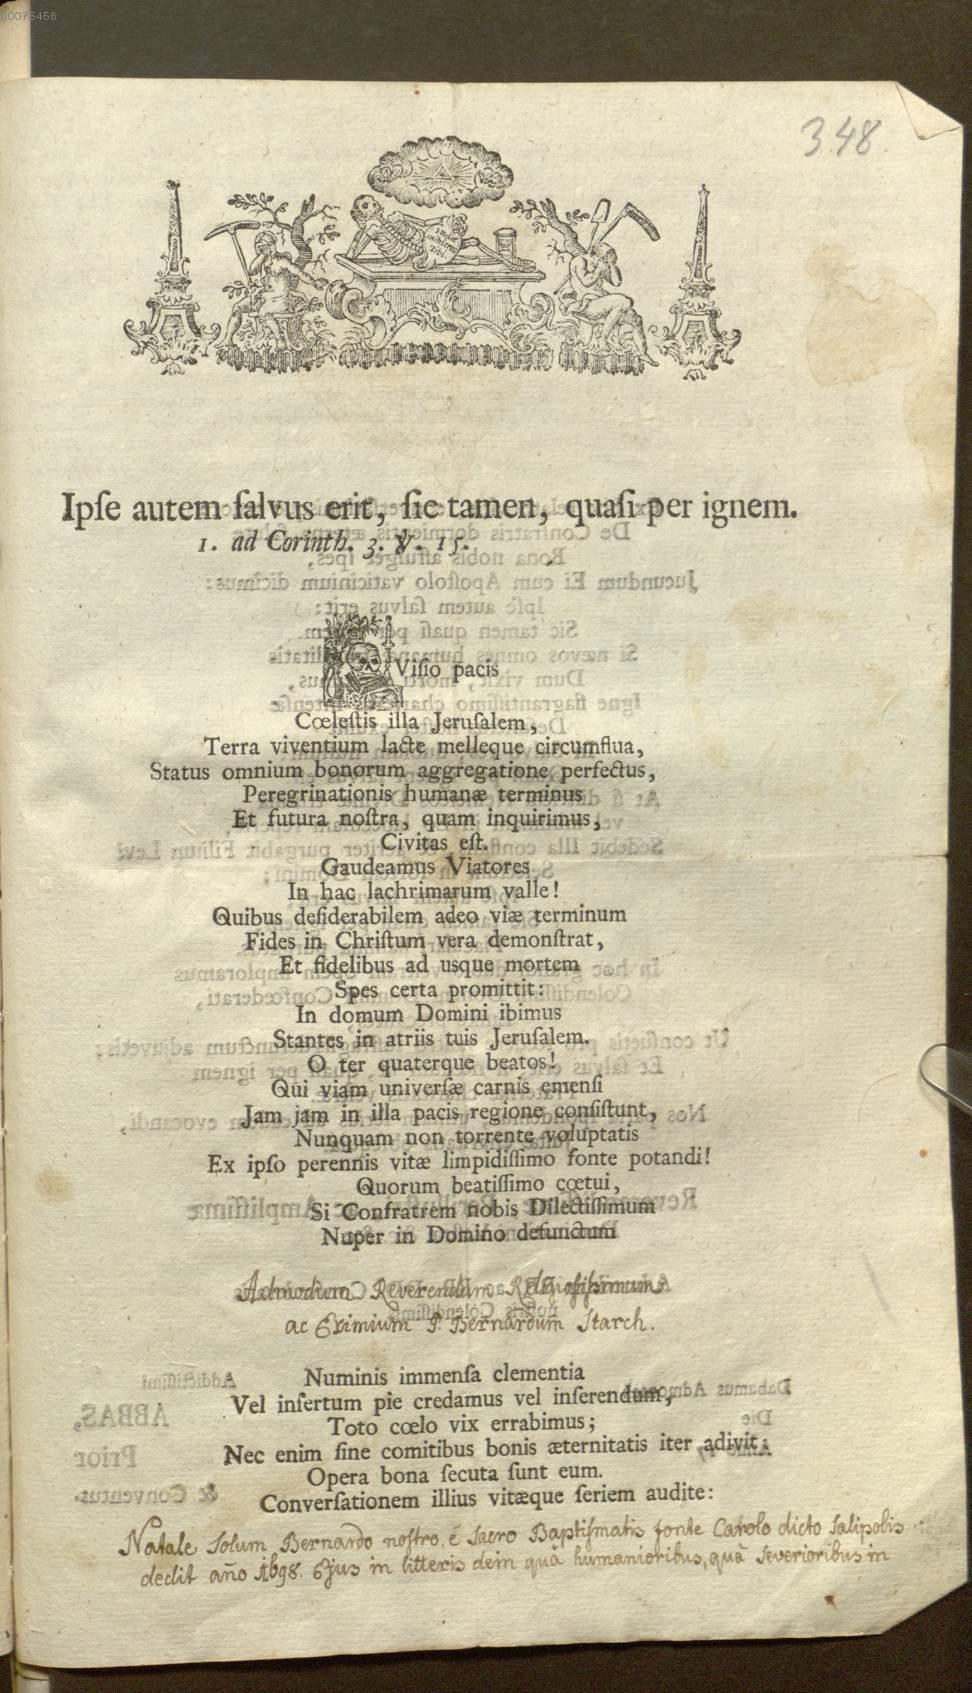 00075456
348.
Ipſe autem ſalvus erit, ſic tamen, quaſi per ignem.
1. ad Corinth. 3. ℣. 15.
Viſio pacis
Cœleſtis illa Jeruſalem,
Terra viventium lacte melleque circumflua,
Status omnium bonorum aggregatione perfectus,
Peregrinationis humanæ terminus
Et futura noſtra, quam inquirimus,
Civitas eſt.
Gaudeamus Viatores
In hac lachrimarum valle!
Quibus deſiderabilem adeo viæ terminum
Fides in Chriſtum vera demonſtrat,
Et fidelibus ad usque mortem
Spes certa promittit:
In domum Domini ibimus
Stantes in atriis tuis Jeruſalem.
O ter quaterque beatos!
Qui viam univerſæ carnis emenſi
Jam jam in illa pacis regione conſiſtunt,
Nunquam non torrente voluptatis
Ex ipſo perennis vitæ limpidiſſimo fonte potandi!
Quorum beatiſſimo cœtui,
Si Confratrem nobis Dilectiſſimum
Nuper in Domino defunctum
Admodum Reverendum Religiosissimum
ac Eximium P. Bernardum Starch.
Numinis immenſa clementia
Vel inſertum pie credamus vel inſerendum,
Toto cœlo vix errabimus;
Nec enim ſine comitibus bonis æternitatis iter adivit
Opera bona ſecuta ſunt eum.
Converſationem illius vitæque ſeriem audite:
Natale Solum Bernardo nostro, è Sacro Baptismatis fonte Carolo dicto Salipolis
dedit año 1698. Ejus in litteris dein quà humanioribus, quà Severioribus in